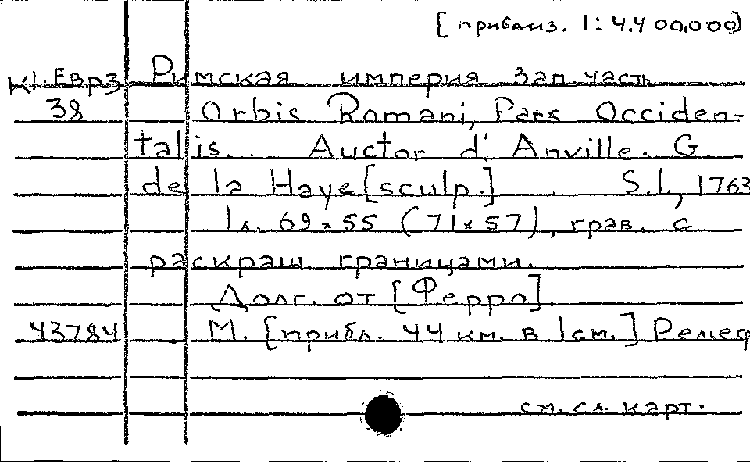 [приблиз. 1:4.400,000)
К1.Евр3 Римская империя зап. часть
38 Orbis Romani, Pars Occiden-
talis. Auctor d'Anville. G
de la Haye [sculp.] S.l., 1763
1 л. 69×55 (71×57), грав. с
раскраш. границами.
Долг. от [Ферро].
43784 М. [прибл. 44 км. в 1 см.] Рельеф
см. сл. карт.